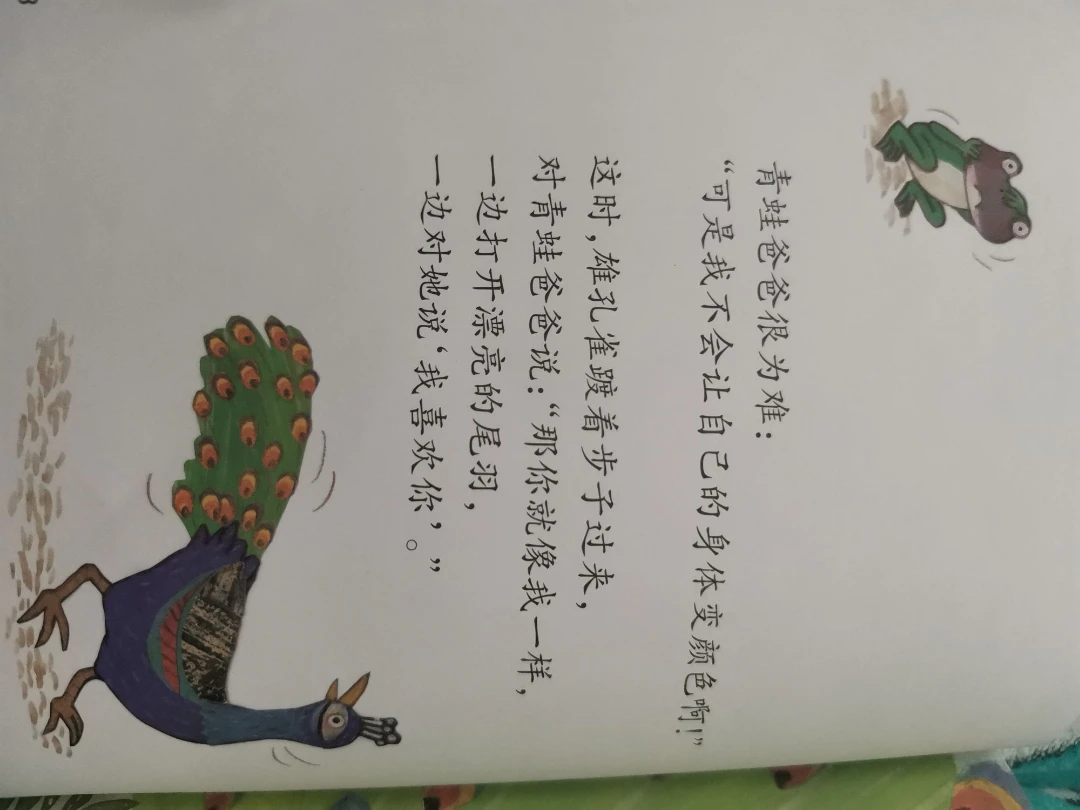 青蛙爸爸很为难：
“可是我不会让自己的身体变颜色啊！”
这时，雄孔雀踱着步子过来，
对青蛙爸爸说：“那你就像我一样，
一边打开漂亮的尾羽，
一边对她说‘我喜欢你’”。